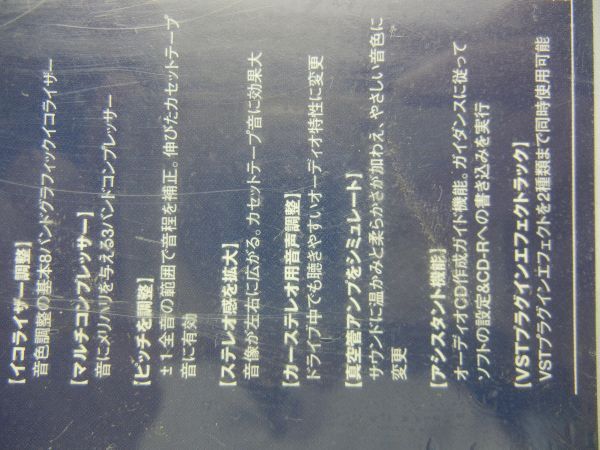 【イコライザー調整】
音色調整の基本8バンドグラフィックイコライザー
【マルチコンプレッサー】
音にメリハリを与える3バンドコンプレッサー
【ピッチを調整】
±1全音の範囲で音程を補正。伸びたカセットテープ
音に有効
【ステレオ感を拡大】
音像が左右に広がる。カセットテープ音に効果大
【カーステレオ用音声調整】
ドライブ中でも聴きやすいオーディオ特性に変更
【真空管アンプをシミュレート】
サウンドに温かみと柔らかさが加わえ、やさしい音色に
変更
【アシスタント機能】
オーディオCD作成ガイド機能。ガイダンスに従って
ソフトの設定&CD-Rへの書き込みを実行
【VSTプラグインエフェクトラック】
VSTプラグインエフェクトを2種類まで同時使用可能